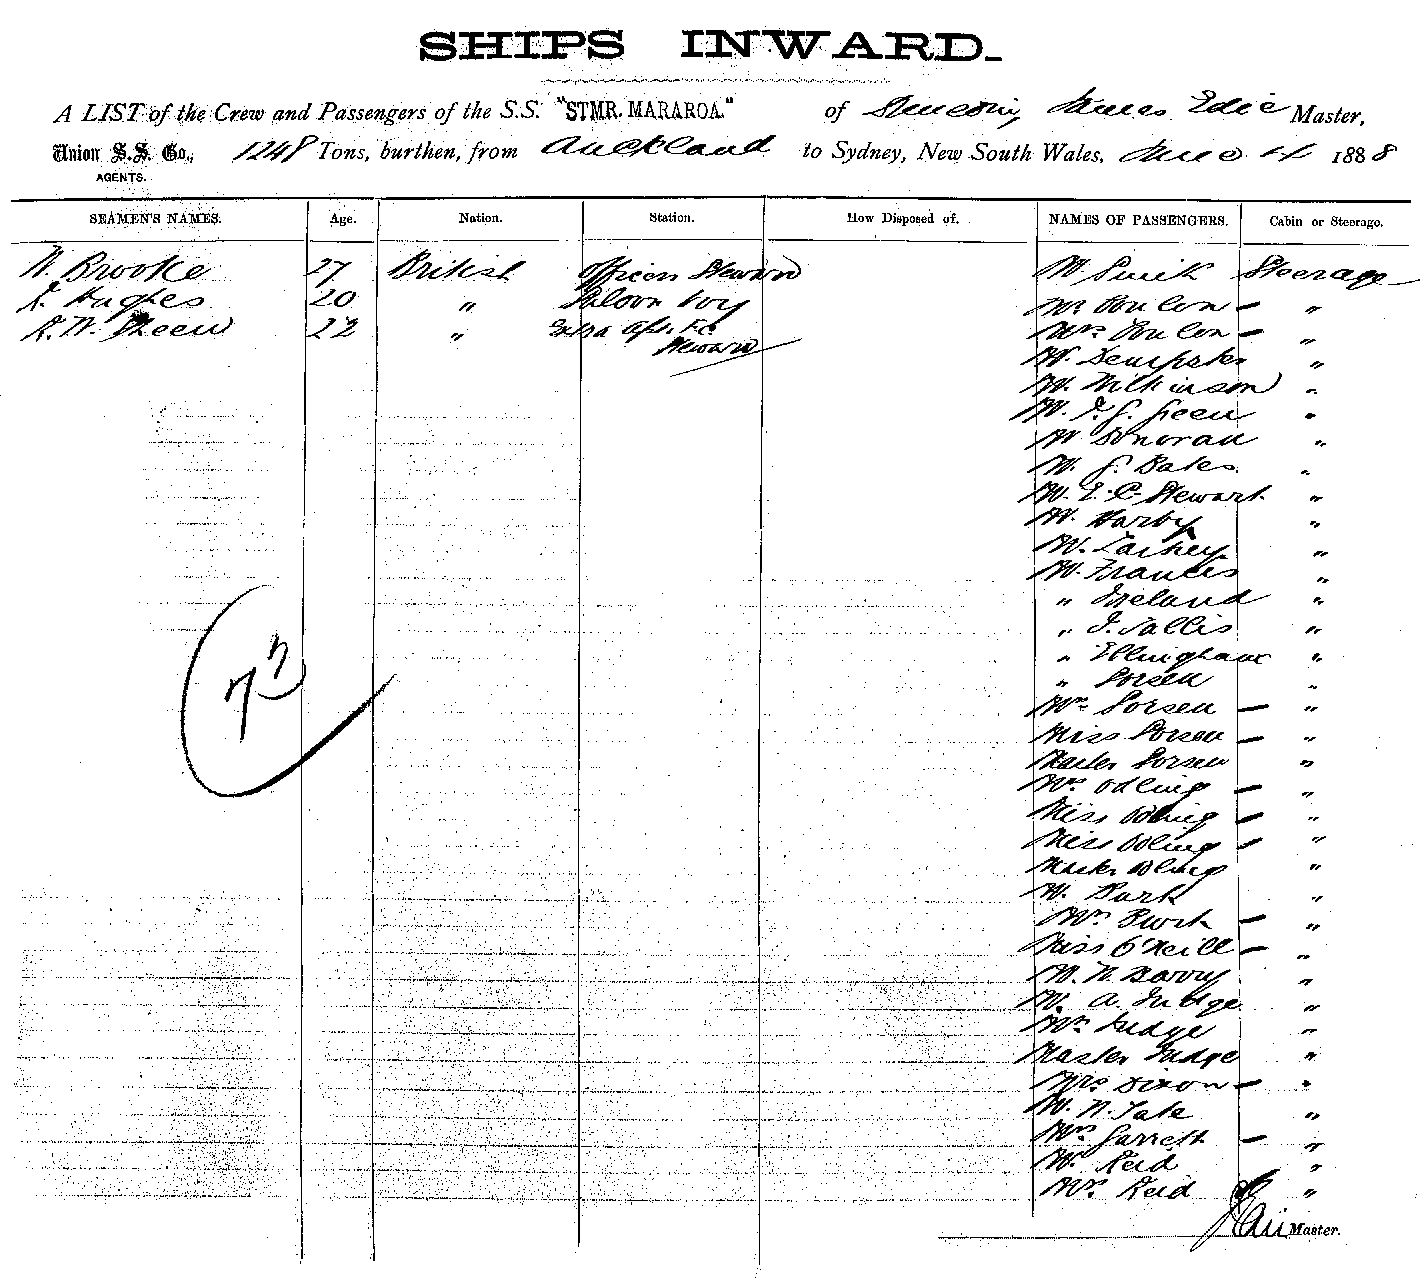 SHIPS INWARD.
A LIST of the Crew and Passengers of the S.S. "STMR. MARAROA." of James Edie Master,
Union S.S. Co., 1248 Tons, burthen, from Auckland to Sydney, New South Wales, June 4 1888
AGENTS.
SEAMEN'S NAMES. Age. Nation. Station. How Disposed of. NAMES OF PASSENGERS. Cabin or Steerage.
W. Brooke 27 British Officers Steward Mr Smith Steerage
J. Hughes 20 " Saloon boy Mr "
22 " Extra Mrs — "
Steward Mr Dempster "
Mr. Wilkinson "
Mr. J. G. Green "
Mr Donovan "
Mr. G. Bates "
Mr. E. C. Stewart "
Mr. Harby "
Mr. "
Mr. Francis "
" Ireland "
" J. Tallis "
" Ellingham "
" Sorsen "
Mrs Sorsen — "
Miss Sorsen — "
Master Sorsen "
Mrs Odling — "
Miss Odling — "
Miss Odling — "
Master Odling "
Mr. Burk "
Mrs Burk — "
Miss O'Neill — "
Mr. W. Barry "
Mr. A. Judge "
Mrs Judge "
Master Judge "
Mrs Dixon — "
Mr. N. Tate "
Mrs Garrett — "
73
Mr Reid "
Mrs Reid "
Master.